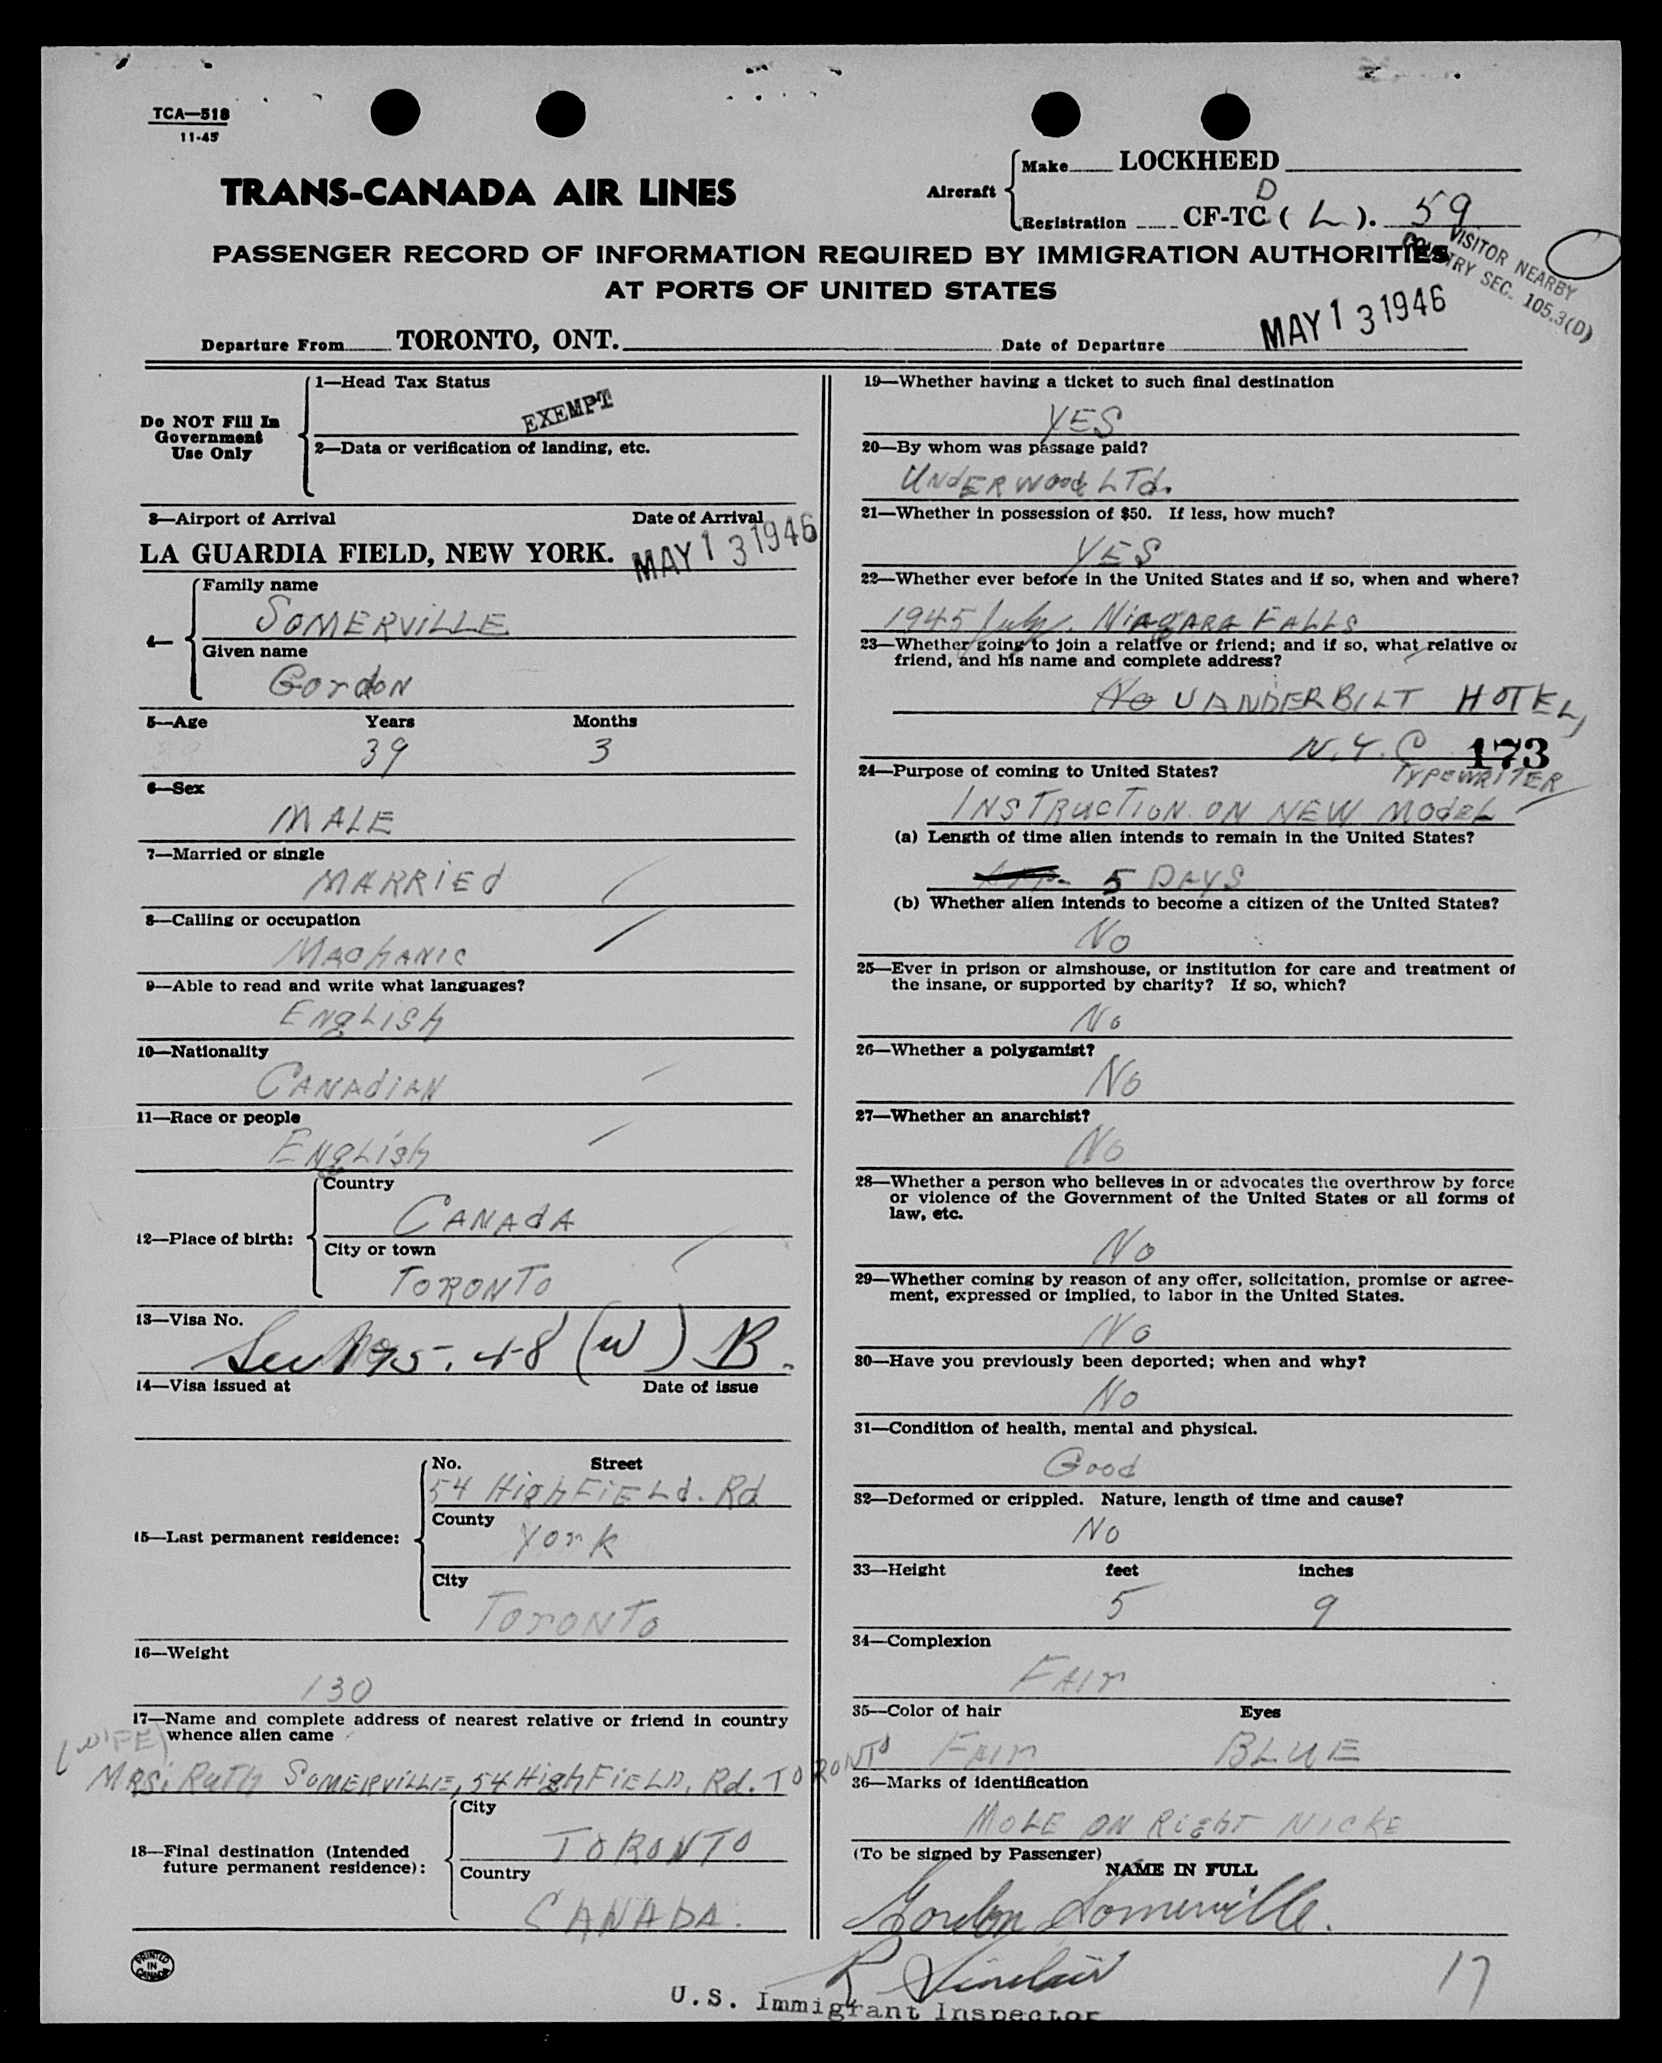 TCA—518
11-45
TRANS-CANADA AIR LINES
Aircraft
Make LOCKHEED
D
Registration CF-TC ( L ). 59
PASSENGER RECORD OF INFORMATION REQUIRED BY IMMIGRATION AUTHORITIES
AT PORTS OF UNITED STATES
VISITOR NEARBY
COUNTRY SEC. 105.3(D)
Departure From TORONTO, ONT. Date of Departure MAY 13 1946
Do NOT Fill In
Government
Use Only
1—Head Tax Status
EXEMPT
2—Data or verification of landing, etc.
3—Airport of Arrival Date of Arrival
LA GUARDIA FIELD, NEW YORK. MAY 13 1946
4—
Family name
SOMERVILLE
Given name
Gordon
5—Age Years Months
39 3
6—Sex
MALE
7—Married or single
MARRIEd
8—Calling or occupation
MachANIC
9—Able to read and write what languages?
ENgLISh
10—Nationality
CANAdiAN
11—Race or people
ENgLish
12—Place of birth:
Country
CANAdA
City or town
TORONTO
13—Visa No.
Sec 175.48 (W) B.
14—Visa issued at Date of issue
15—Last permanent residence:
No. Street
54 HighFiELd. Rd
County
York
City
ToroNTo
16—Weight
130
17—Name and complete address of nearest relative or friend in country
whence alien came
(WIFE)
MRS. RuTh SOMERVILLE, 54 HighFiELD, Rd. TORONTO
18—Final destination (Intended
future permanent residence):
City
TORONTO
Country
CANADA.
PRINTED
IN
CANADA
19—Whether having a ticket to such final destination
YES
20—By whom was passage paid?
UNdERWood LTd.
21—Whether in possession of $50. If less, how much?
YES
22—Whether ever before in the United States and if so, when and where?
1945 July. NiAgARA FALLS
23—Whether going to join a relative or friend; and if so, what relative or
friend, and his name and complete address?
No VANDERBILT HOTEL,
N.Y.C 173
24—Purpose of coming to United States?
TYPEWRITER
INSTRUCTION ON NEW MOdEL
(a) Length of time alien intends to remain in the United States?
5 DAYS
(b) Whether alien intends to become a citizen of the United States?
No
25—Ever in prison or almshouse, or institution for care and treatment of
the insane, or supported by charity? If so, which?
No
26—Whether a polygamist?
No
27—Whether an anarchist?
No
28—Whether a person who believes in or advocates the overthrow by force
or violence of the Government of the United States or all forms of
law, etc.
No
29—Whether coming by reason of any offer, solicitation, promise or agree-
ment, expressed or implied, to labor in the United States.
No
30—Have you previously been deported; when and why?
No
31—Condition of health, mental and physical.
Good
32—Deformed or crippled. Nature, length of time and cause?
No
33—Height feet inches
5 9
34—Complexion
FAIr
35—Color of hair Eyes
FAIr BLUE
36—Marks of identification
MOLE ON RIGhT NICKE
(To be signed by Passenger)
NAME IN FULL
Gordon Somerville.
R Sinclair
17
U.S. Immigrant Inspector